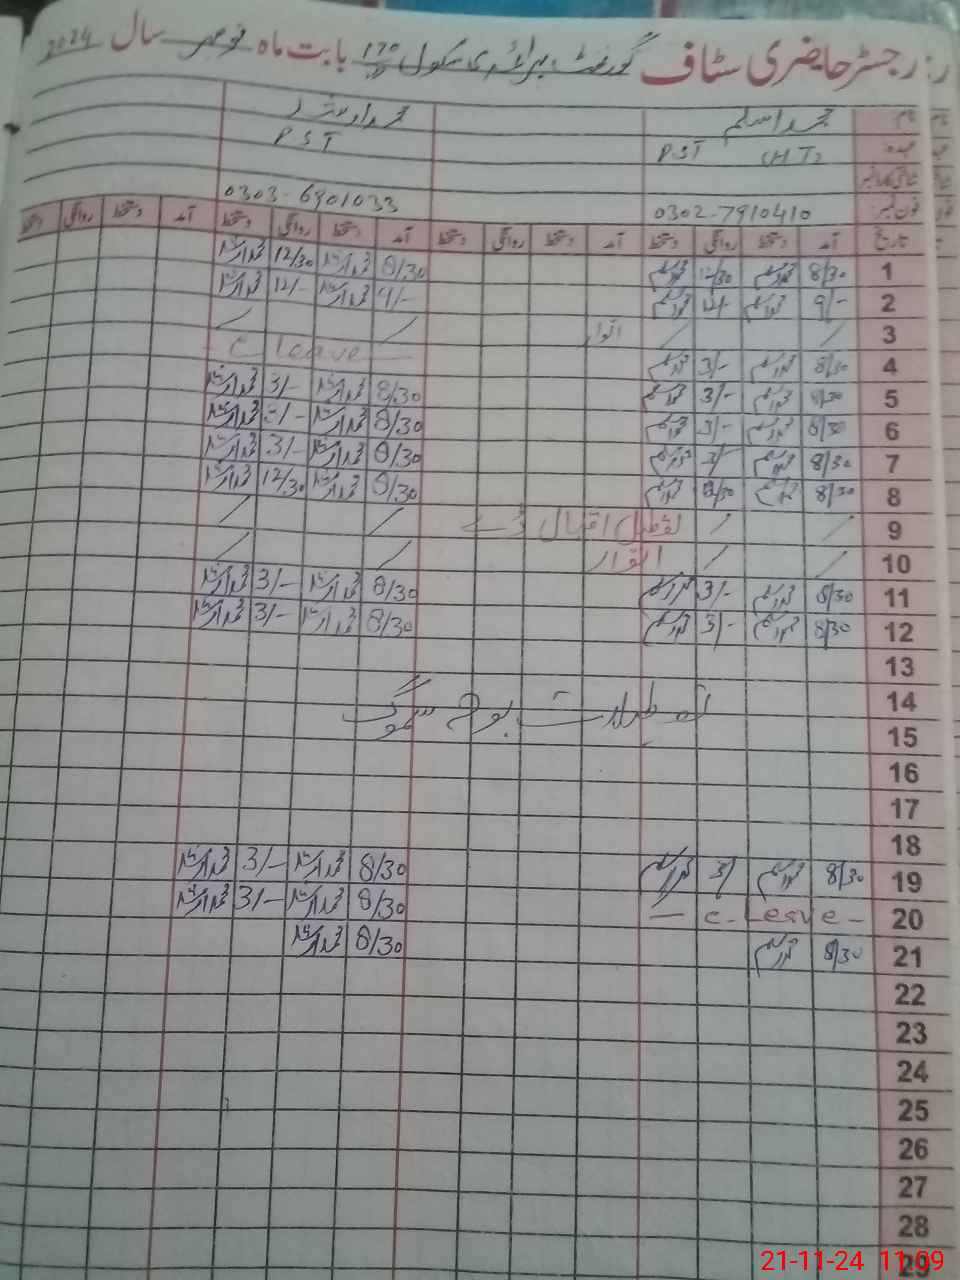 رجسٹر حاضری سٹاف گورنمنٹ پرائمری سکول 170 بابت ماہ نومبر سال 2024
نام محمد اسلم محمد ارشد
عہدہ PST (HT) PST
شناختی کارڈ نمبر
فون نمبر 0302-7910410 0303-6901033
تاریخ آمد دستخط روانگی دستخط آمد دستخط روانگی دستخط آمد دستخط روانگی دستخط آمد دستخط روانگی دستخط
1 8/30 محمد اسلم 12/30 محمد اسلم 8/30 محمد ارشد 12/30 محمد ارشد
2 9/- محمد اسلم 12/- محمد اسلم 9/- محمد ارشد 12/- محمد ارشد
3 / / / اتوار / /
4 8/30 محمد اسلم 3/- محمد اسلم — C leave —
5 8/30 محمد اسلم 3/- محمد اسلم 8/30 محمد ارشد 3/- محمد ارشد
6 8/30 محمد اسلم 3/- محمد اسلم 8/30 محمد ارشد 3/- محمد ارشد
7 8/30 محمد اسلم 3/ محمد اسلم 8/30 محمد ارشد 3/- محمد ارشد
8 8/30 محمد اسلم 12/30 محمد اسلم 8/30 محمد ارشد 12/30 محمد ارشد
9 / / تعطیل اقبال ڈے / /
10 / / اتوار / /
11 8/30 محمد اسلم 3/- محمد اسلم 8/30 محمد ارشد 3/- محمد ارشد
12 8/30 محمد اسلم 3/- محمد اسلم 8/30 محمد ارشد 3/- محمد ارشد
13
14 تعطیلات بوجہ سموگ
15
16
17
18
19 8/30 محمد اسلم 3/ محمد اسلم 8/30 محمد ارشد 3/- محمد ارشد
20 — C. Leave — 8/30 محمد ارشد 3/- محمد ارشد
21 8/30 محمد اسلم 8/30 محمد ارشد
22
23
24
25
26
27
28
29
21-11-24 11:09